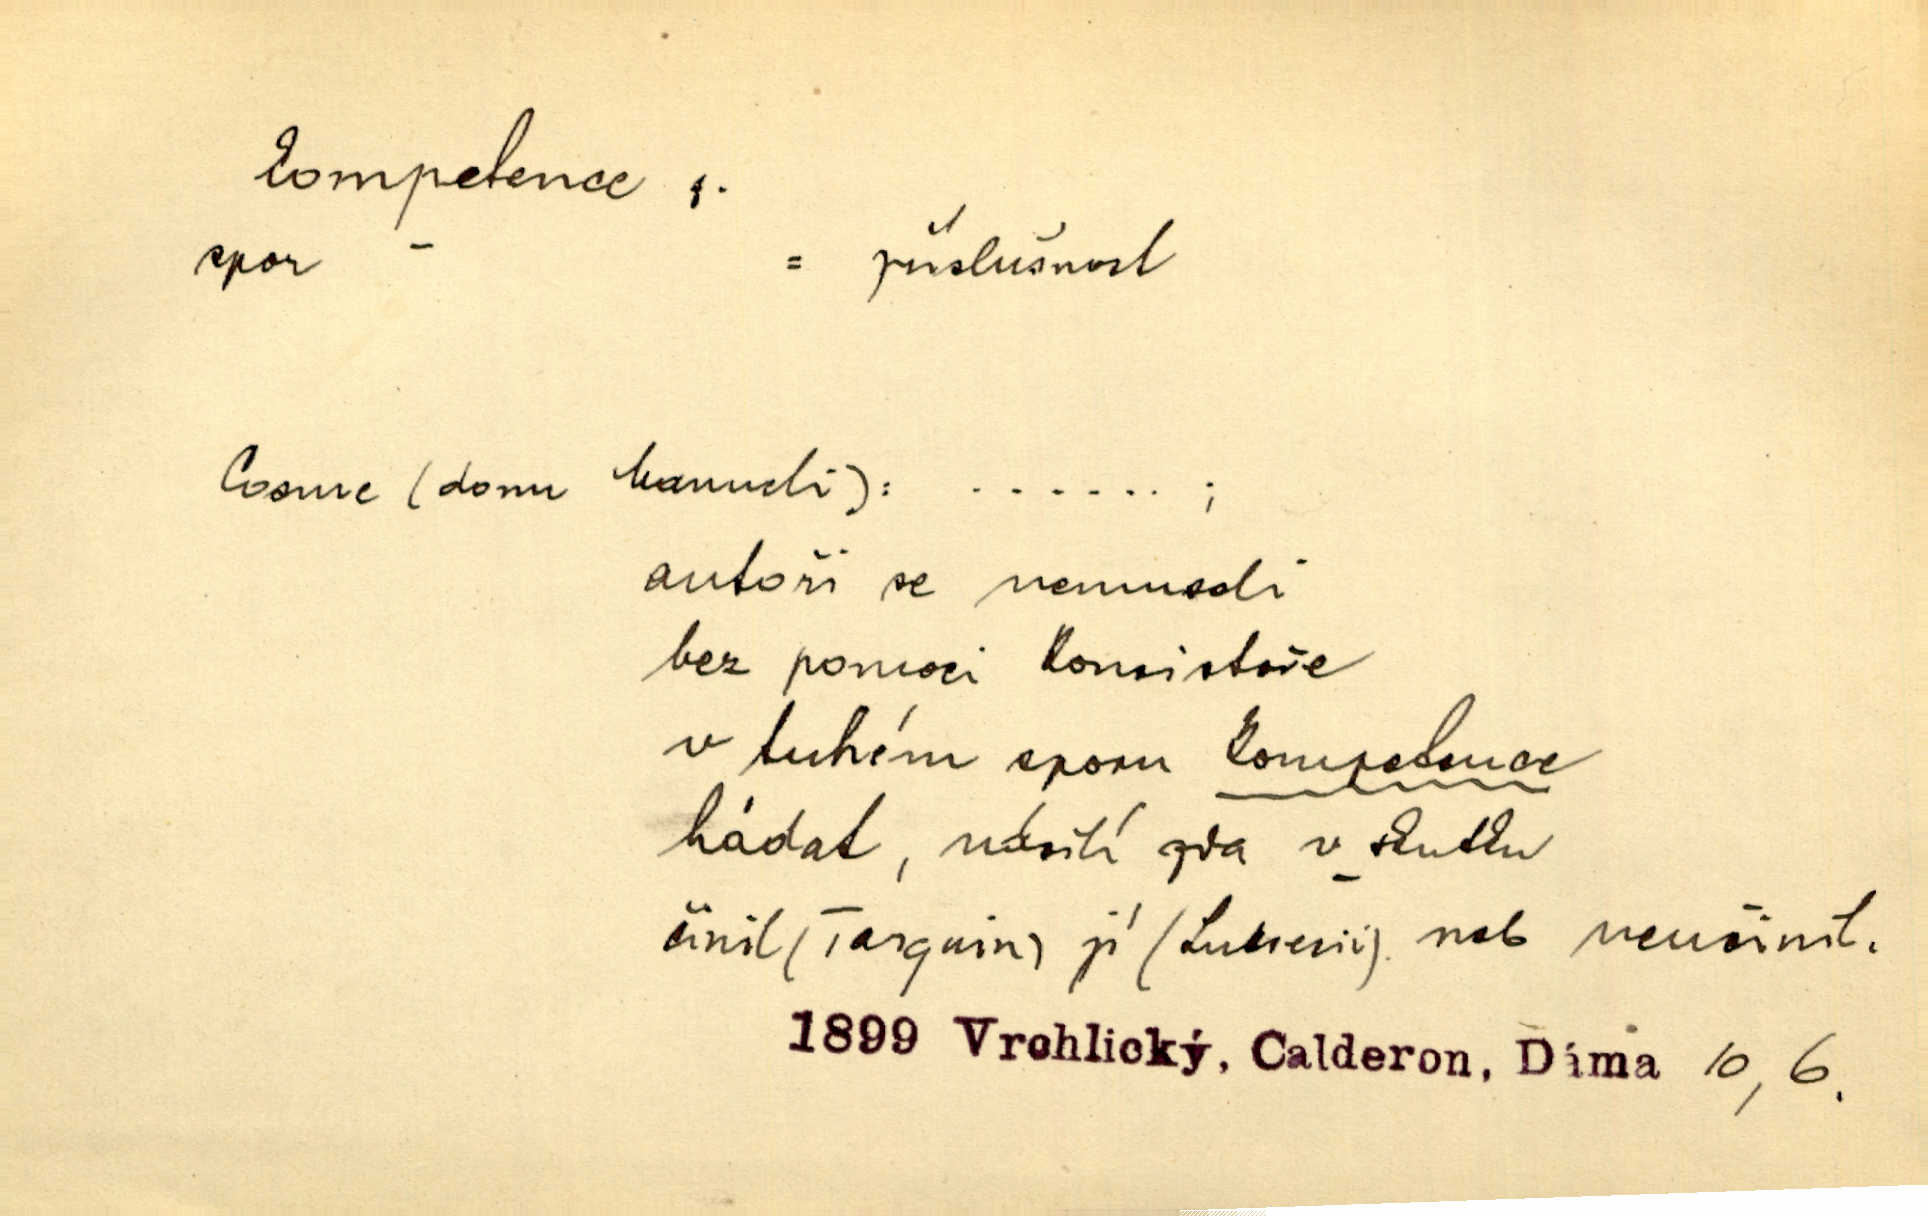 kompetence f.
spor - = příslušnost
Cosme (donu Manueli): . . . . . . . ;
autoři se nemuseli
bez pomoci konsistoře
v tuhém sporu kompetence
hádat, násilí zda v skutku
činil (Tarquin) jí (Lukrecii) neb neučinil.
1899 Vrchlický, Calderon, Dáma 10, 6.